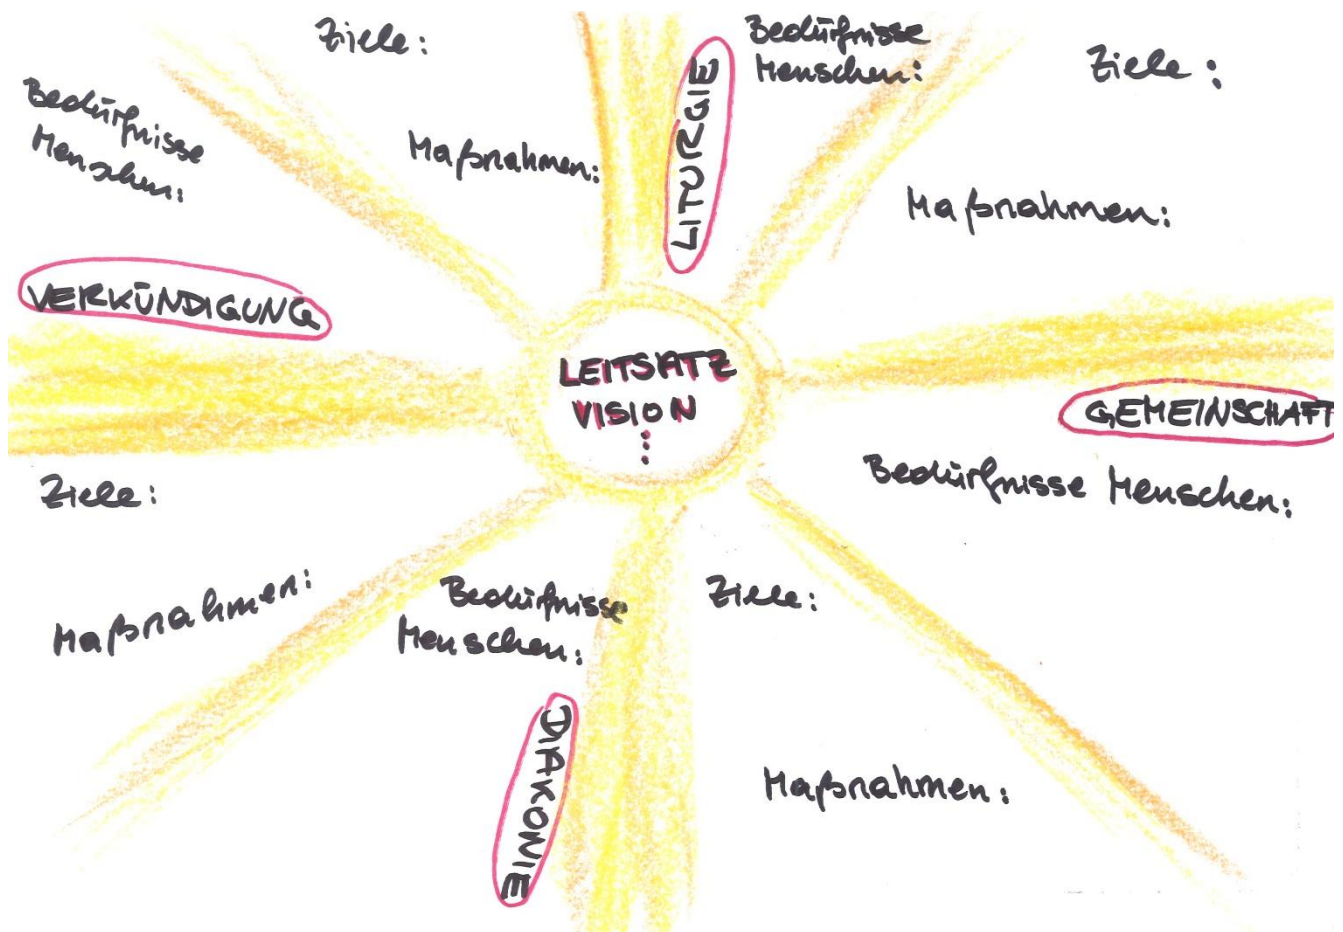 Ziele:
Bedürfnisse
Menschen:
Maßnahmen:
VERKÜNDIGUNG
LITURGIE
Bedürfnisse
Menschen:
Ziele:
Maßnahmen:
LEITSATZ
VISION
⋮
GEMEINSCHAFT
Bedürfnisse Menschen:
Ziele:
Maßnahmen:
Bedürfnisse
Menschen:
DIAKONIE
Ziele:
Maßnahmen: